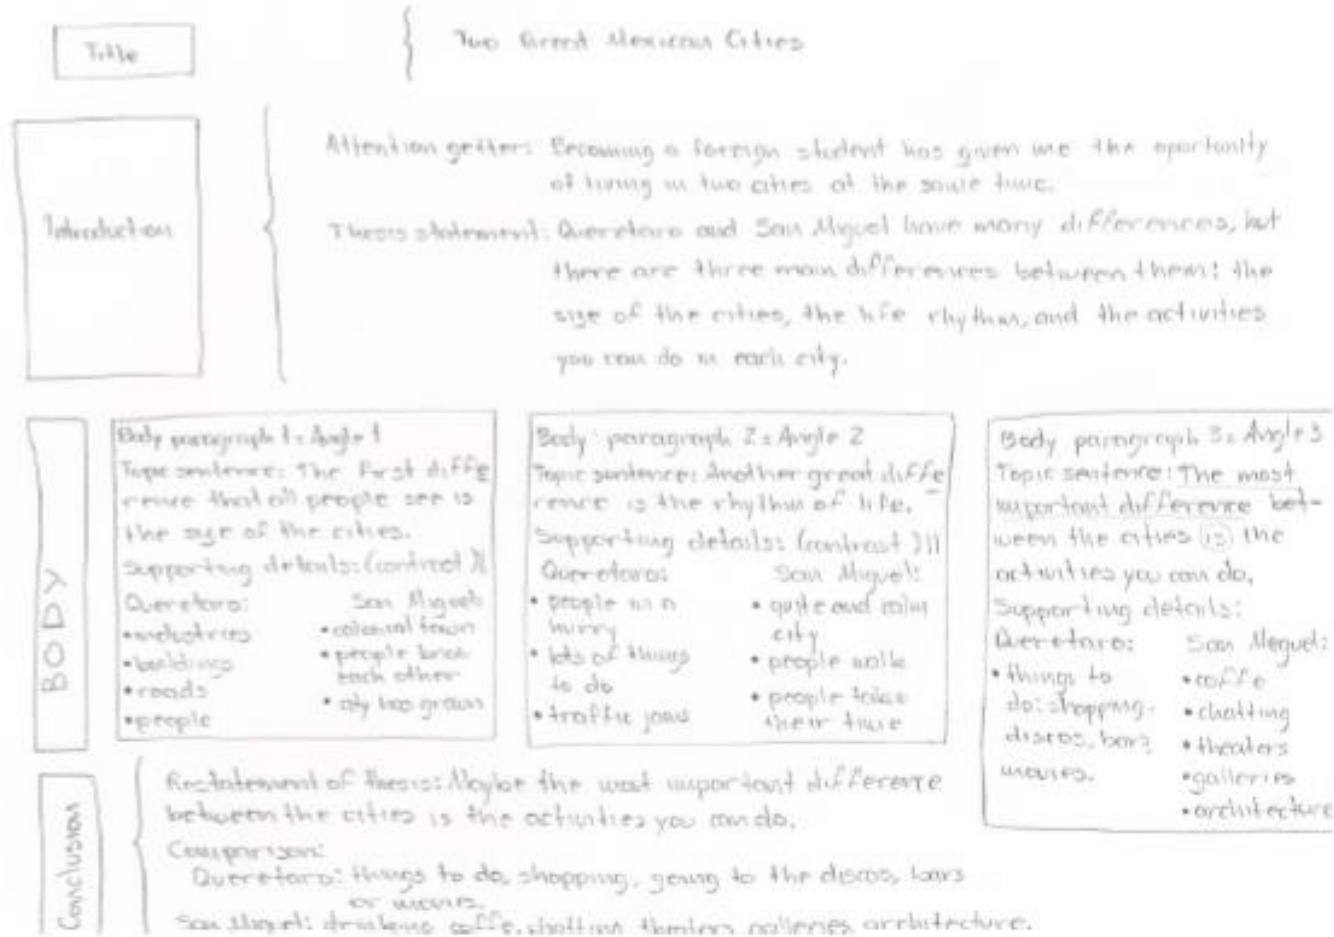 Title
Two Great Mexican Cities
Introduction
Attention getter: Becoming a foreign student has given me the oportunity
of living in two cities at the same time.
Thesis statement: Queretaro and San Miguel have many differences, but
there are three main differences between them: the
size of the cities, the life rhythm, and the activities
you can do in each city.
BODY
Body paragraph 1: Angle 1
Topic sentence: The first diffe
rence that all people see is
the size of the cities.
Supporting details: (contrast)
Queretaro:
• industries
• buildings
• roads
• people
San Miguel:
• colonial town
• people know
each other
• city has grown
Body paragraph 2: Angle 2
Topic sentence: Another great diffe
rence is the rhythm of life.
Supporting details: (contrast)
Queretaro:
• people in a
hurry
• lots of things
to do
• traffic jams
San Miguel:
• quite and calm
city
• people walk
• people take
their time
Body paragraph 3: Angle 3
Topic sentence: The most
important difference bet-
ween the cities is the
activities you can do.
Supporting details:
Queretaro:
• things to
do: shopping,
discos, bars,
movies.
San Meguel:
• coffe
• chatting
• theaters
• galleries
• architecture
Conclusion
Restatement of thesis: Maybe the most important difference
between the cities is the activities you can do.
Comparison:
Queretaro: things to do, shopping, going to the discos, bars
or movies.
San Miguel: drinking coffe, chatting theaters galleries architecture.